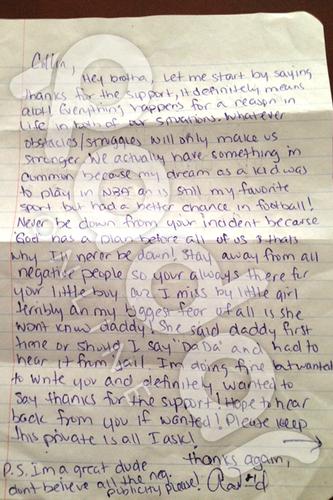 Collyn,
Hey brotha, Let me start by saying
thanks for the support, it definitely means
alot! Everything happens for a reason in
life in both of our situations. Whatever
obstacles/struggles will only make us
stronger. We actually have something in
common because my dream as a kid was
to play in NBA an is still my favorite
sport but had a better chance in football!
Never be down from your incident because
God has a plan before all of us & thats
why I never be down! Stay away from all
negative people so your always there for
your little boy cuz I miss by little girl
terribly an my biggest fear of all is she
wont know daddy! She said daddy first
time or should I say "Da Da" and had to
hear it from jail. I'm doing fine but wanted
to write you and definitely wanted to
say thanks for the support! Hope to hear
back from you if wanted! Please keep
this private is all I ask! →
thanks again,
P.S. I'm a great dude
dont believe all the neg.
publicity please!